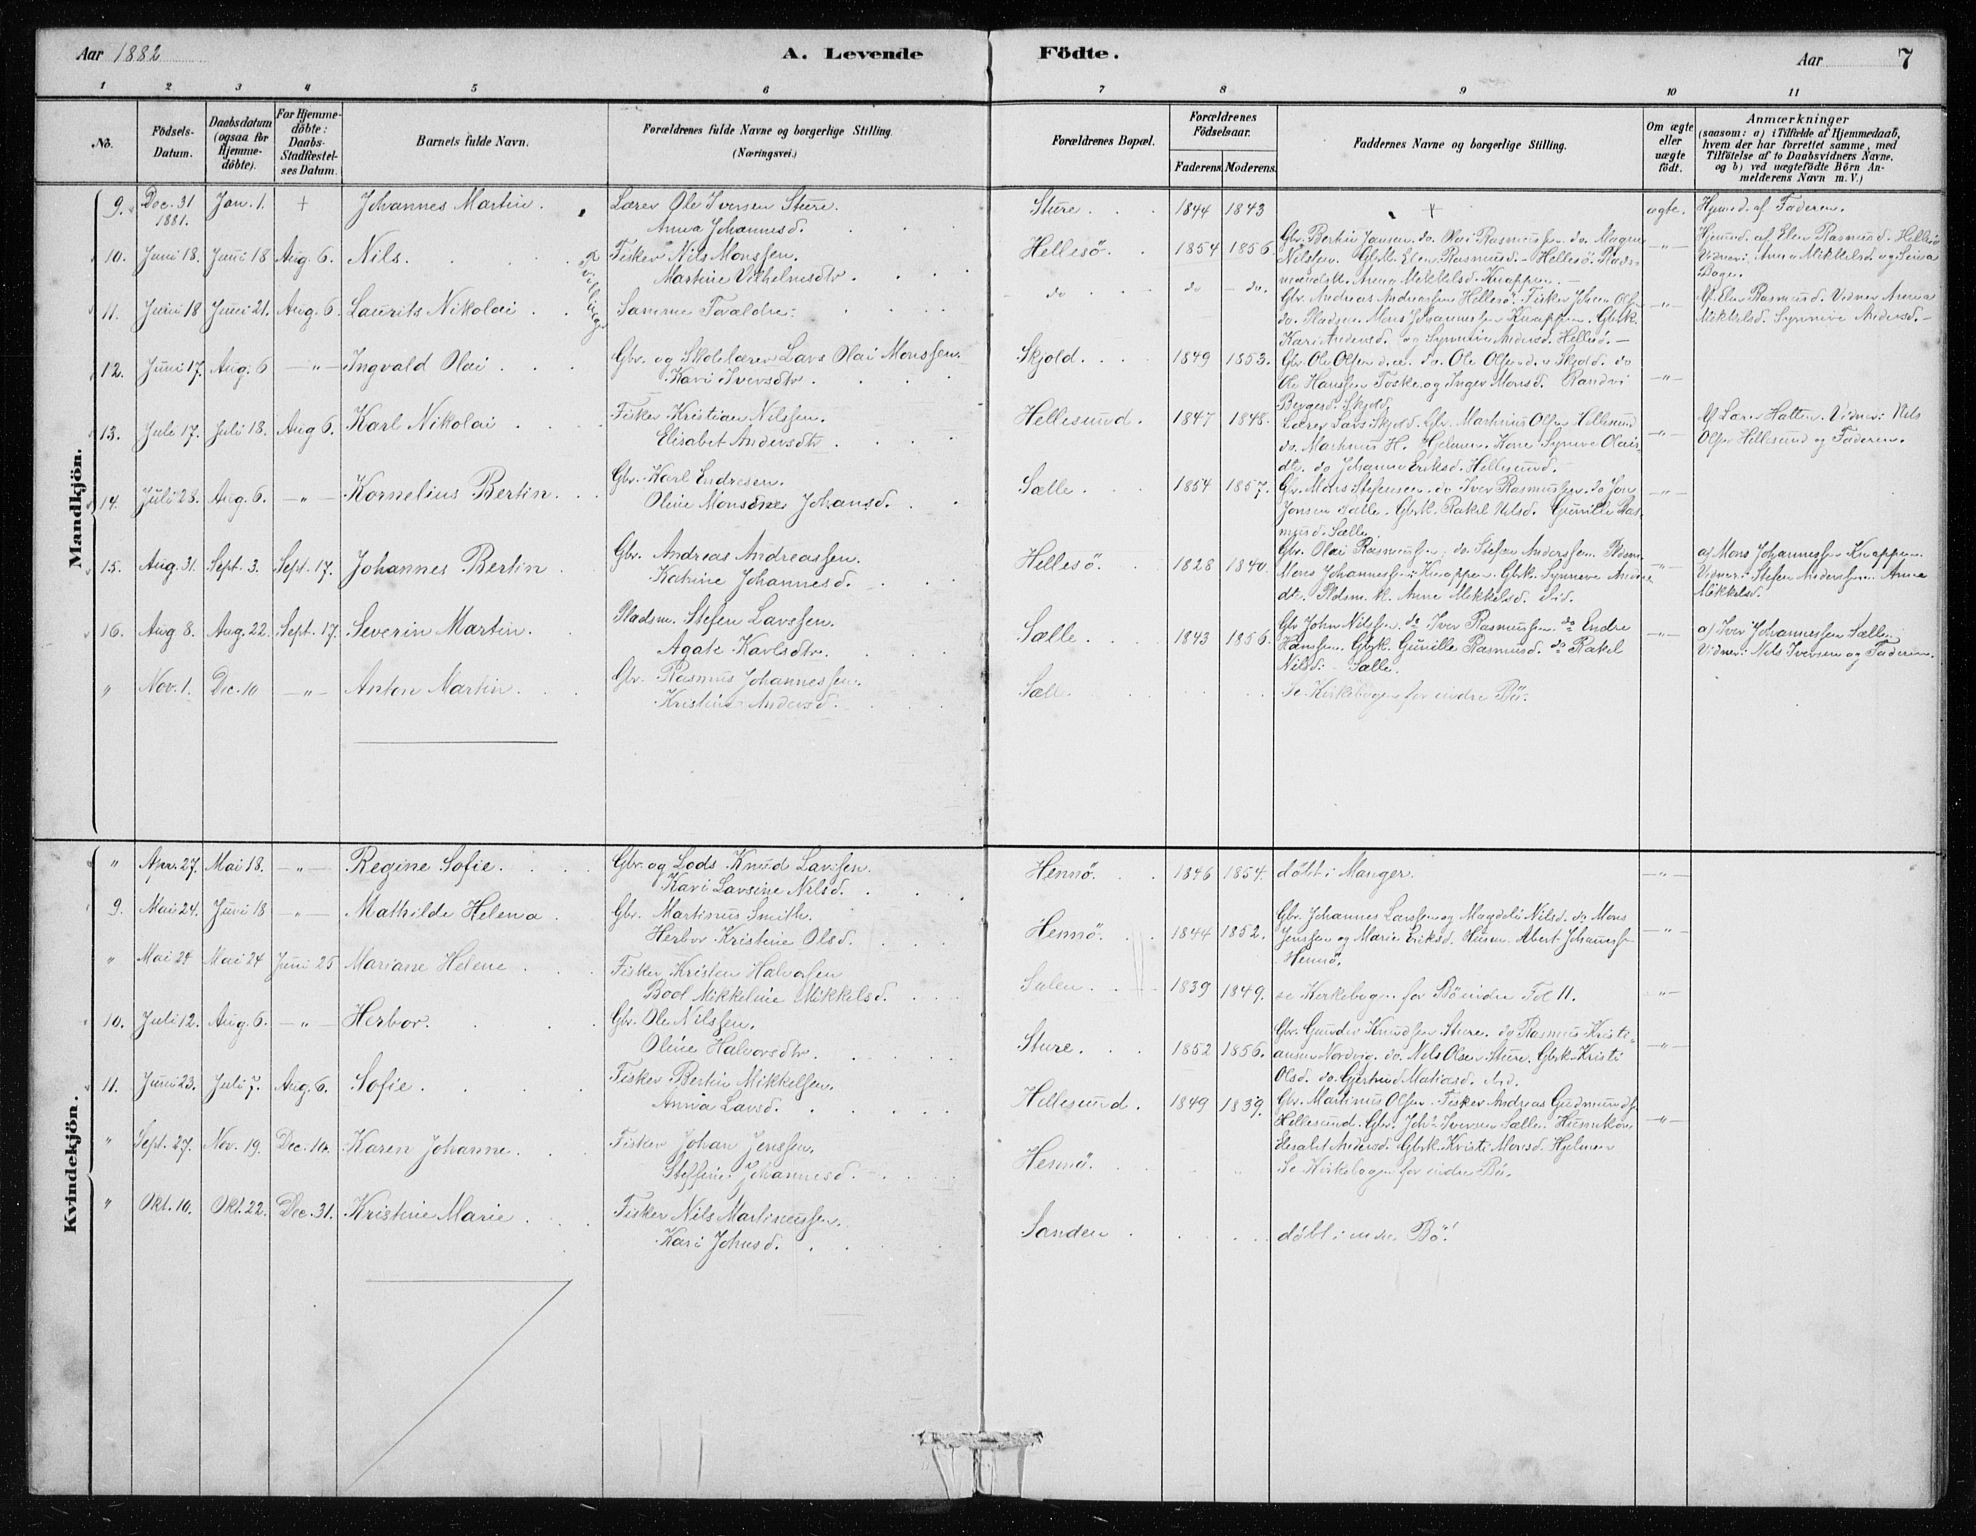 Aar 1882
A. Levende
Födte.
Aar
7
1 2 3 4 5 6 7 8 9 10 11
No.
Födsels-Datum.
Daabsdatum (ogsaa for Hjemme-döbte).
For Hjemme-döbte: Daabs-Stadfæstel-ses Datum.
Barnets fulde Navn.
Forældrenes fulde Navne og borgerlige Stilling. (Næringsvei.)
Forældrenes Bopæl.
Forældrenes Födselsaar.
Faderens. Moderens.
Faddernes Navne og borgerlige Stilling.
Om ægte eller uægte født.
Anmærkninger
(saasom: a) i Tilfælde af Hjemmedaab, hvem der har forrettet samme, med Tilföielse af to Daabsvidners Navne, og b) ved uægtefödte Börn Anmelderens Navn m. V.)
Mandkjön.
9. Dec. 31 1881. Jan. 1. + Johannes Martin. Lærer Ole Iversen Sture. Sture 1844 1843 + ægte. Hjemd. af Faderen.
Anna Johannesd.
10. Juni 18. Juni 18 Aug. 6. Nils. Fisker Nils Monssen. Hellesö. 1854 1856. Gbr. Bertin Jansen do. Olai Rasmussen do. Magne
Martine Vilhelmsdtr.
Nilsen. Elen Rasmusd. Hellesö.
Hjemd. af Elen Rasmusd. Hellesö
Vidner: Anna Mikkelsd. og
11. Juni 18 Juni 21. Aug. 6. Laurits Nikolai Samme Foraldre. do do do. Gbr. Andreas Andreassen Hellesö. Fisker Johan Olsen
do. Pladsm. Mons Johannessen Knappen. Gbrk.
Kari Andersd. og Synneve Andersd. Hellesö.
Af Elen Rasmusd. Vidner Anna
Mikkelsd. Synneve Andersd.
12. Juni 17. Aug. 6 -"- Ingvald Olai Gbr. og Skolelærer Lars Olai Monssen. Skjold. 1849 1853. Gbr. Ole Olsen d. æ. do. Ole Olsen d. y. Skjold. do
Kari Iversdtr.
Ole Hanssen Toske og Inger Monsd. Randvi
Skjold. -"-
13. Juli 17. Juli 18. Aug. 6. Karl Nikolai Fisker Kristian Nilssen. Hellesund. 1847 1848. Lærer Lars Skjold. Gbr. Martinus Olsen Hellesund
Elisabet Andersdtr.
do. Martinus H. Hjelmen. Kone Synneve Olais-
dtr. do Johanne Eriksd. Hellesund.
Af Lærer Hatten. Vidner: Nils
Olsen Hellesund og Faderen.
14. Juli 28. Aug. 6. -"- Kornelius Bertin. Gbr. Karl Endresen. Sælle. 1854 1857. Gbr. Mons Stefensen. do Iver Rasmussen. do Jon
Oline Johansd.
Jonsen Sælle. Gbrk. Rakel Nilsd. Gunille Ras-
musd. Sælle. -"-
15. Aug. 31. Sept. 3. Sept. 17. Johannes Bertin. Gbr. Andreas Andreassen. Hellesö. 1828 1840. Gbr. Olai Rasmussen, do. Stefen Anderssen.
Katrine Johannesd.
Mons Johannessen Knappen. Gbrk. Synneve Anders-
dtr. Anne Mikkelsd. ibid.
a) Mons Johannessen Knappen.
Vidner: Stefen Anderssen. Anna
Mikkelsd.
16. Aug 8. Aug. 22. Sept. 17. Severin Martin. Pladsm. Stefen Larssen. Sælle. 1843 1856. Gbr. John Nilssen. do Iver Rasmussen. do Endre
Agate Karlsdtr.
Hanssen. Gbrk. Gunille Rasmusd. do Rakel
Nilsd. Sælle. -"-
a) Iver Johannessen Sælle.
Vidner: Nils Iversen og Faderen.
" Nov. 1. Dec. 10 -"- Anton Martin Gbr. Rasmus Johannessen. Sælle Se Kirkebogen for indre Bø.
Kristine Andersd.
Kvindekjön.
" Apr. 27. Mai 18. -"- Regine Sofie. Gbr. og Lods Knud Larssen. Hennö. 1846 1854. døbt i Manger. -"-
Kari Larsine Nilsd.
9. Mai 24. Juni 18 -"- Mathilde Helena Gbr. Martinus Smith. Hennö. 1844 1852. Gbr. Johannes Larssen og Magdeli Nilsd. do Mons
Herbor Kristine Olsd.
Jenssen og Marie Eriksd. Husm. Abert Johannesse
Hennö. -"-
" Mai 24 Mai 24 Juni 25 Mariane Helene Fisker Kristen Halvorsen Sulen 1839 1849. se Kirkebogen for Bø indre Fol 11. -"-
Bool Mikkeline Mikkelsd.
10. Juli 12. Aug. 6. -"- Herbor. Gbr. Ole Nilssen. Sture. 1852 1856. Gbr. Gunder Knudssen Sture. do Rasmus Kristi-
Oline Halvorsdtr.
ansen Nordvig. do. Nils Olsen Sture. Gbrk. Kristi
Olsd. do. Gjertrud Matiasd. -"-
11. Juni 23. Juli 7. Aug. 6. Sofie. Fisker Bertin Mikkelsen. Hellesund. 1849 1839. Gbr. Martinus Olsen. Fisker Andreas Gudmunds.
Anna Larsd.
Hellesund. Gbr. Johs Iversen Sælle.
Elisabet Andersd. Gbrk. Kristi Monsd. Hjelmen -"-
" Sept. 27. Nov. 19. Dec. 10. Karen Johanne. Fisker Johan Jenssen. Hennö. Se Kirkebogen for indre Bø.
Steffine Johannesd.
" Okt. 10. Okt. 22. Dec. 31. Kristine Marie Fisker Nils Martinussen. Sanden døbt i indre Bö!
Kari Johnsd.